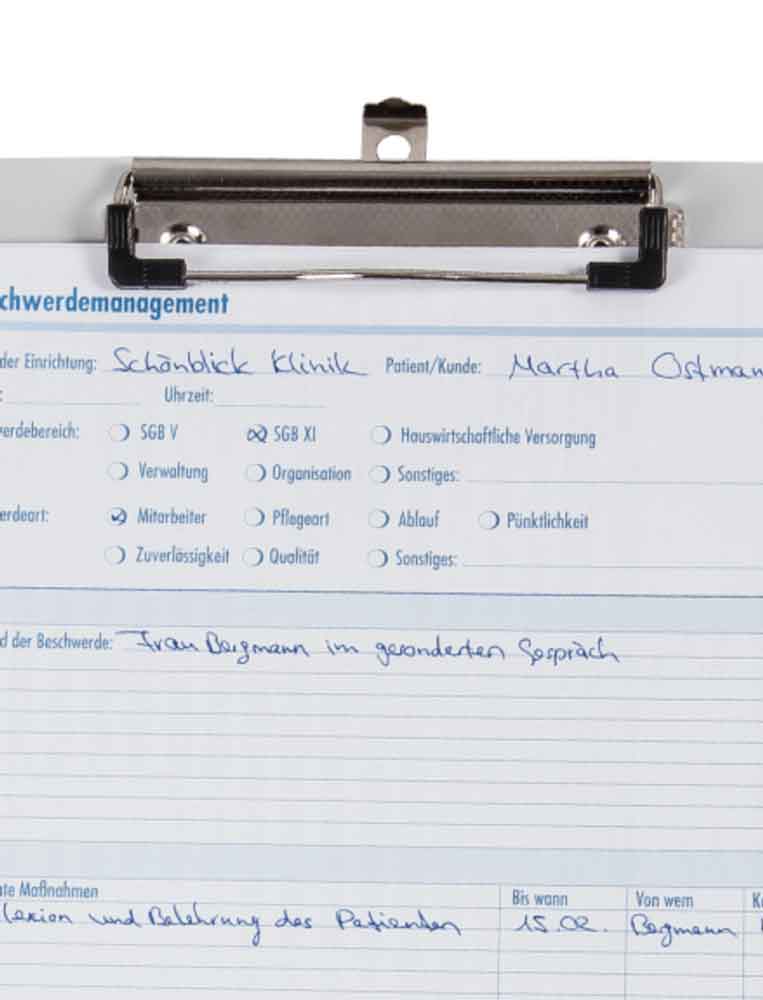 chwerdemanagement
der Einrichtung: Schönblick Klinik Patient/Kunde: Martha Ostman
: Uhrzeit:
erdebereich: SGB V SGB XI Hauswirtschaftliche Versorgung
Verwaltung Organisation Sonstiges:
erdeart: Mitarbeiter Pflegeart Ablauf Pünktlichkeit
Zuverlässigkeit Qualität Sonstiges:
d der Beschwerde: Frau Bergmann im gesonderten Gespräch
te Maßnahmen Bis wann Von wem K
lexion und Belehrung des Patienten 15.02. Bergmann